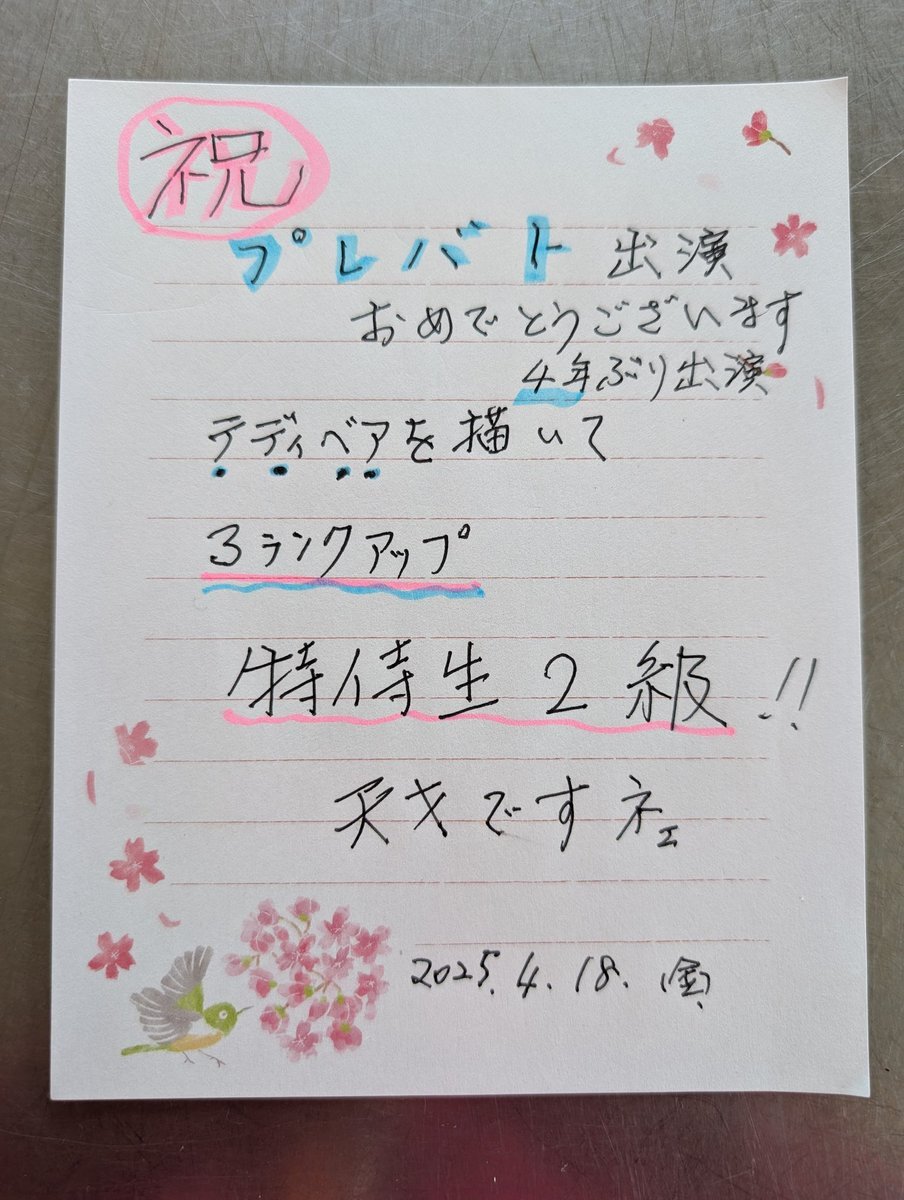 祝
プレバト 出演
おめでとうございます
4年ぶり出演
テディベアを描いて
3ランクアップ
特待生2級!!
天才ですネェ
2025.4.18.(金)